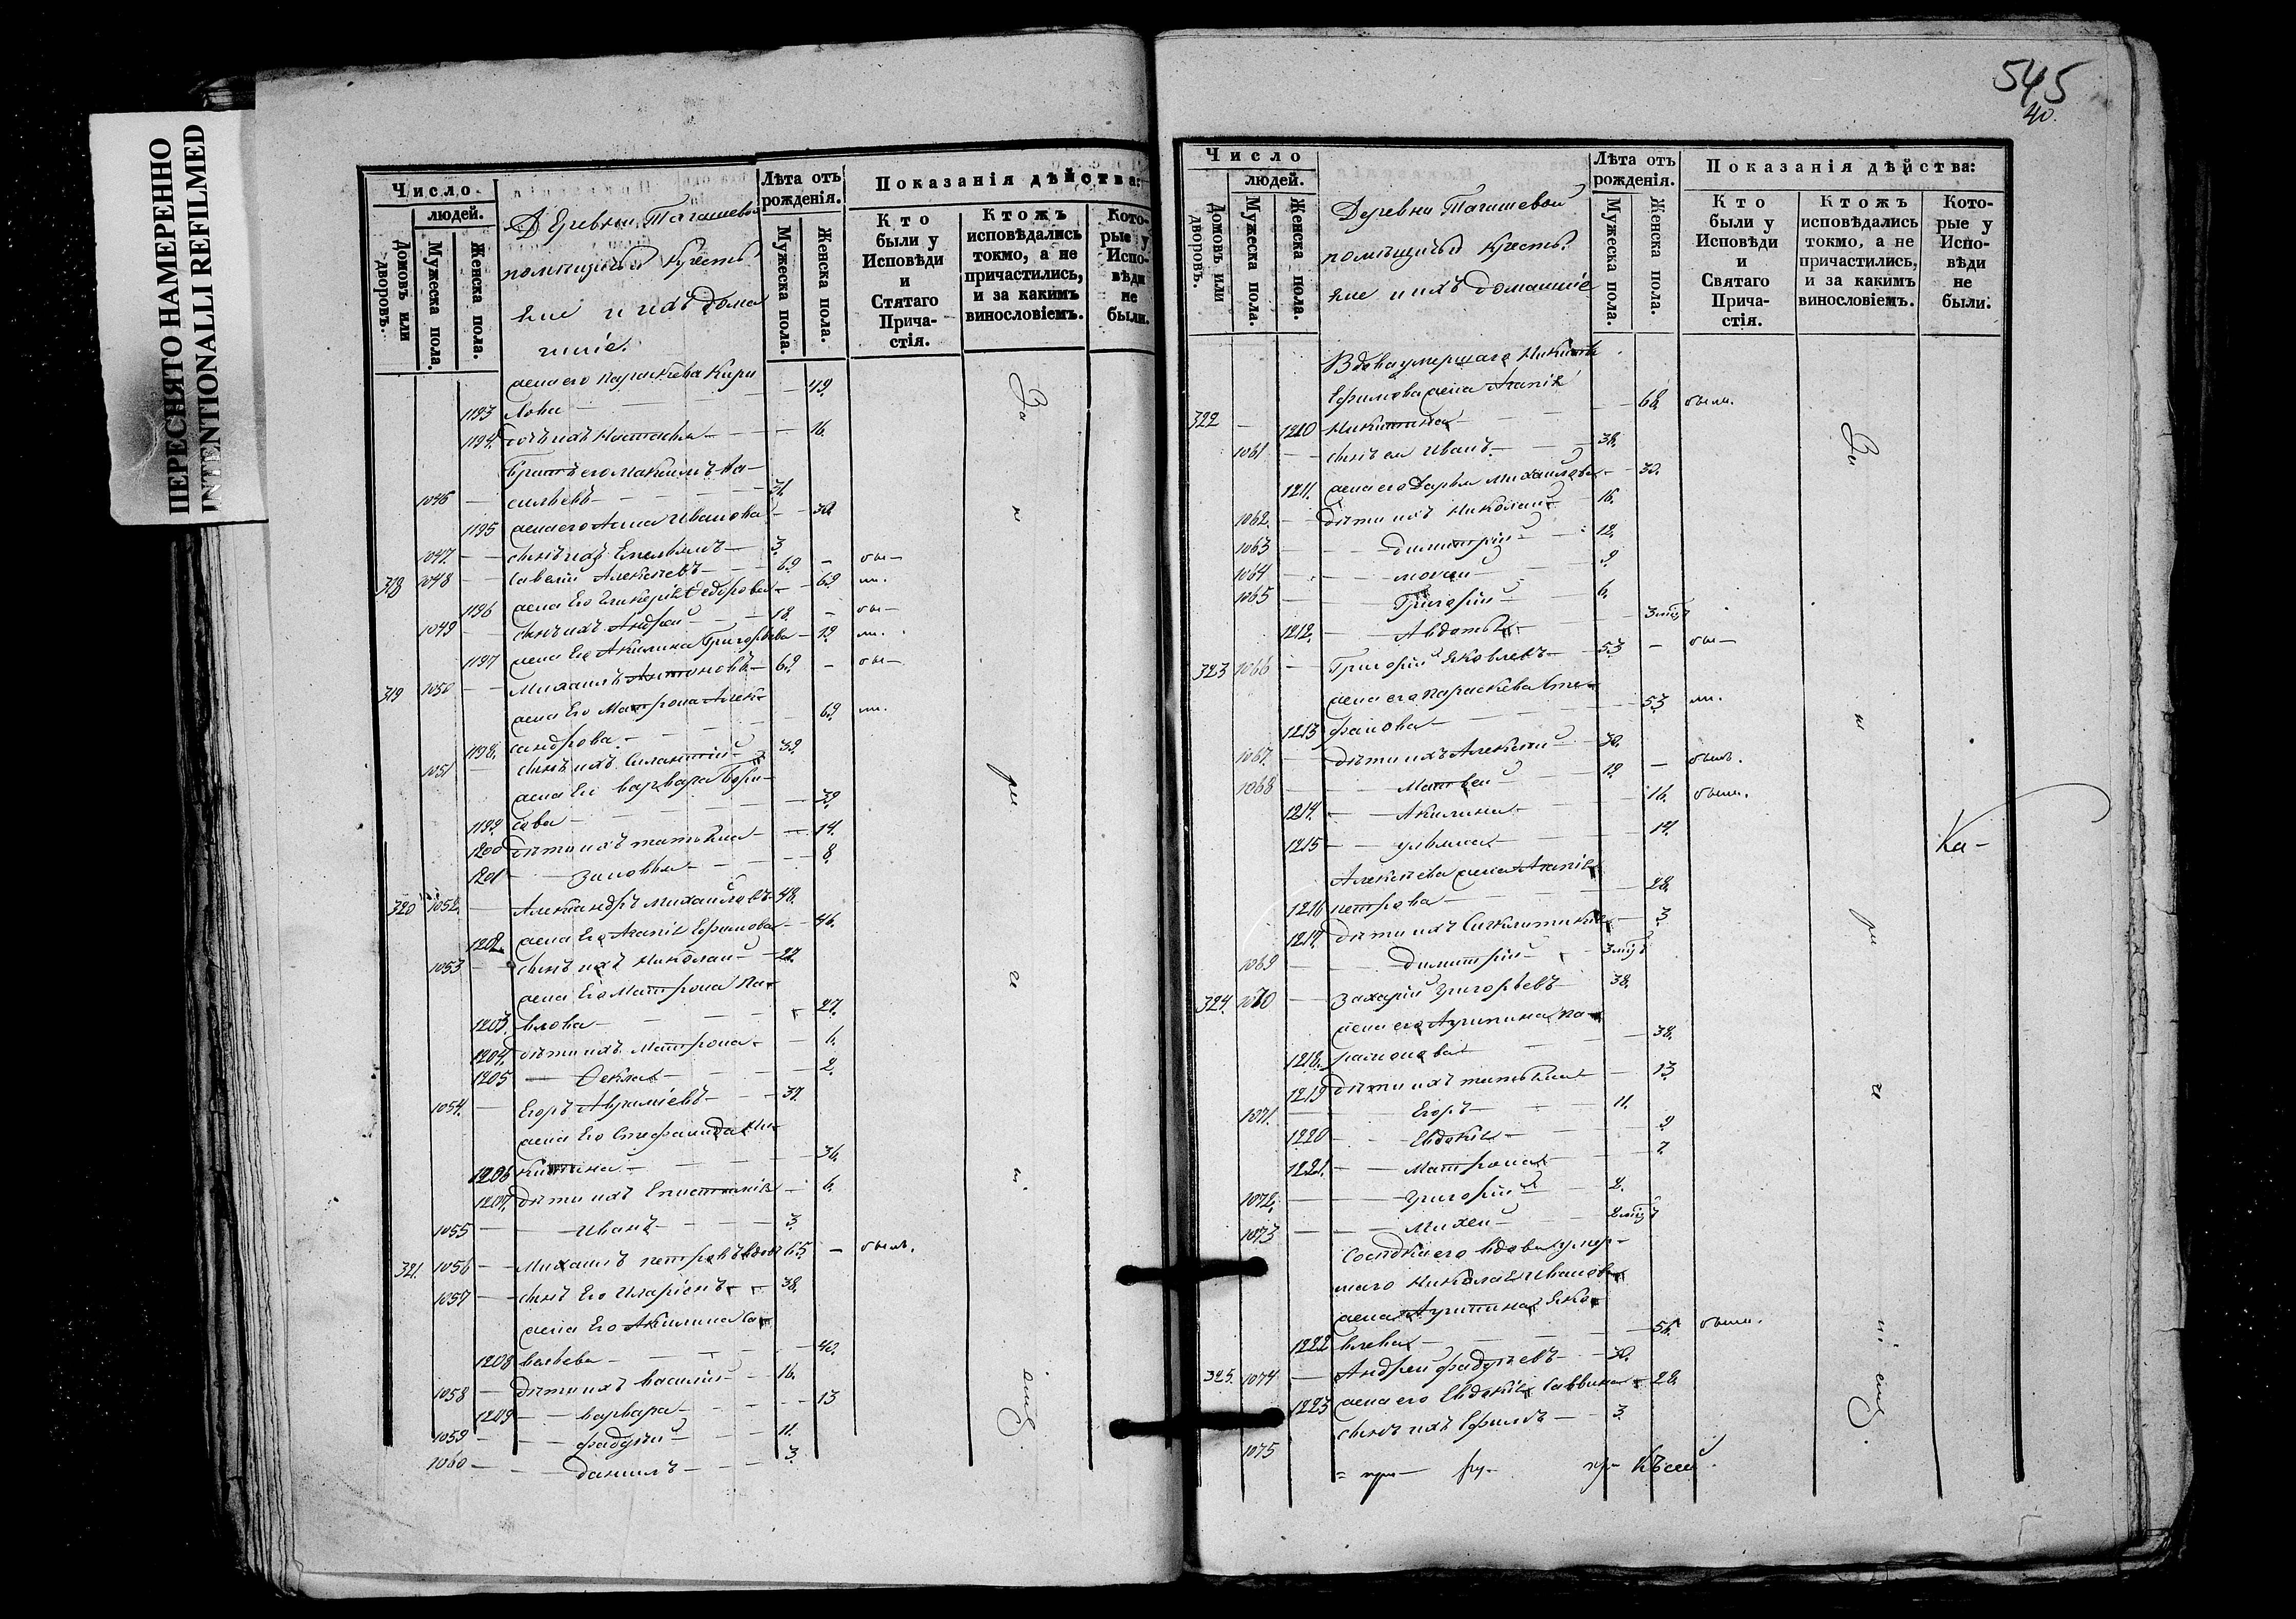 ПЕРЕСНЯТО НАМЕРЕННО
INTENTIONALLI REFILMED
Число
людей.
Домовъ или дворовъ.
Мужеска пола.
Женска пола.
Деревни Тагашевой
помѣщичьи кресть
яне и ихъ дома
шніе.
Лѣта отъ рожденія.
Мужеска пола.
Женска пола.
Показанія дѣйства:
Кто были у Исповѣди и Стятаго Прича- стія.
Ктожъ исповѣдались токмо, а не причастились, и за какимъ винословіемъ.
Кото- рые у Испо- вѣди не были.
жена его Параскева Кири
1193 лова — 49.
1194. дочь ихъ Настасья — 16.
Братъ его Максимъ Ва-
1046 сильевъ — 31.
1195 жена его Анна Иванова — 30.
1047. сынъ ихъ Емельянъ — 3.
318 1048 Савелий Алексѣевъ — 69 — бы-
1196 жена Его Гликерія Федорова — 69 ли.
1049 сынъ ихъ Андрей — 18. — бы-
1197 жена Его Акилина Григорьева — 19. ли.
319 1050 Михаилъ Антоновъ — 69 — бы-
жена Его Матрона Алек-
1198. сандрова — 69. ли.
1051 сынъ ихъ Силантий — 39.
жена Его Варвара Бори-
1199. сова — 39.
1200 дѣти ихъ Татьяна — 14.
1201 Зиновья — 8.
320 1052. Александръ Михайловъ 48.
1202. жена Его Агапія Ефимова — 46.
1053 сынъ ихъ Николай — 22.
жена Его Матрона Па-
1203. влова — 27.
1204. дѣти ихъ Матрона — 6.
1205 Фекла — 2.
1054. Егоръ Авраміевъ — 37.
жена Его Стефанида Ни-
1206 китина — 36.
1207. дѣти ихъ Епистимія — 6.
1055 Иванъ — 3.
321. 1056 Михаилъ Петровъ вдовъ 65 — былъ.
1057 сынъ Его Иларіонъ — 38.
жена Его Акилина Са-
1208 вельева — 40.
1058 дѣти ихъ Василий — 16.
1209 Варвара — 13
1059 Фадѣй — 11.
1060 Даниилъ — 3.
545
40.
Число
людей.
Домовъ или дворовъ.
Мужеска пола.
Женска пола.
Деревни Тагашевой
помѣщичьи кресть
яне и ихъ домашніе
Лѣта отъ рожденія.
Мужеска пола.
Женска пола.
Показанія дѣйства:
Кто были у Исповѣди и Святаго Прича- стія.
Ктожъ исповѣдались токмо, а не причастились, и за какимъ винословіемъ.
Кото- рые у Испо- вѣди не были.
Вдова умершаго Никиты
Ефимова жена Агапія
322 1210 Никитина — 68. была.
1061 сынъ ея Иванъ — 38.
1211. жена его Дарья Михайлова — 39.
1062. дѣти ихъ Николай — 16.
1063 Димитрій — 12.
1064 Моисей — 9
1065 Григорій — 6.
1212. Авдотья — 3 мцъ
323 1066 Григорій Яковлевъ — 53 — бы-
жена его Параскева Сте-
1213 фанова — 53 ли.
1067. дѣти ихъ Алексѣй — 30.
1068 Матвей — 19. — былъ.
1214. Акилина — 16. была.
1215 Ульяна — 14.
Алексѣева жена Агапія
1216 Петрова — 28.
1217. дѣти ихъ Сигклитикія — 3
1069 Димитрій — 3 мцъ
324. 1070 Захарій Григорьевъ — 38.
жена его Агрипина Па-
1218. — 38.
1219 дѣти ихъ Татьяна — 13
1071. Егоръ — 11.
1220 Евдокія — 9
1221. Матрона — 7
1072. Григорій — 2.
1073 Михей — 2 мцъ
Сосѣдка его вдова умер-
шаго Николая Иванова
жена Агрипина Яко-
1222 влева — 56. была.
325. 1074 Андрей Фадѣевъ — 30.
1223 жена его Евдокія Саввина — 28.
1075 сынъ ихъ Ефимъ — 3.
Ка-